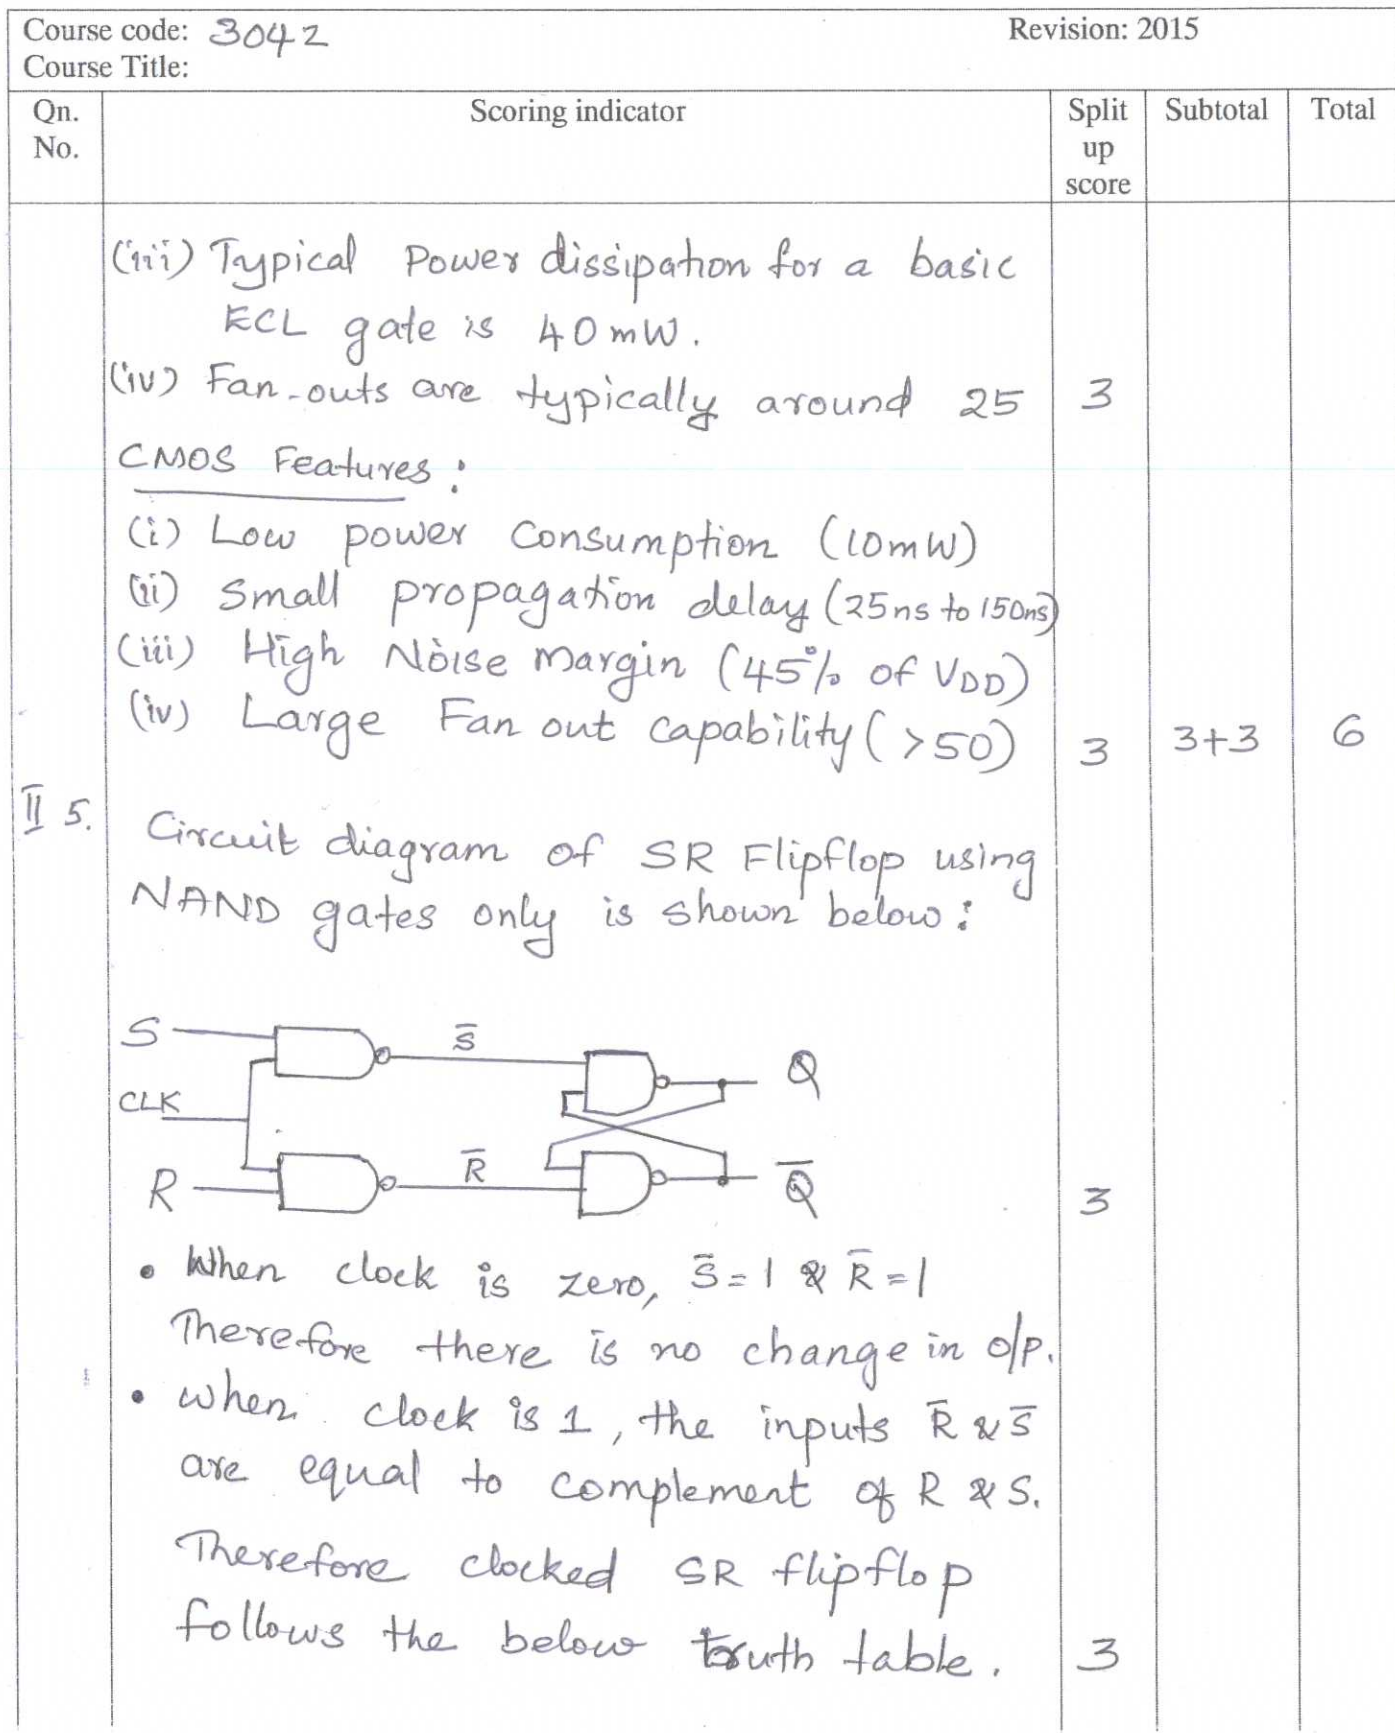 Course code: 3042 Revision: 2015
Course Title:
Qn. No. Scoring indicator Split up score Subtotal Total
(iii) Typical Power dissipation for a basic
ECL gate is 40mW.
(iv) Fan-outs are typically around 25 3
CMOS Features:
(i) Low power Consumption (10mW)
(ii) Small propagation delay (25ns to 150ns)
(iii) High Noise Margin (45% of VDD)
(iv) Large Fan out capability (>50) 3 3+3 6
II 5. Circuit diagram of SR Flipflop using
NAND gates only is shown below:
S S̅ Q
CLK
R R̅ Q̅ 3
• When clock is zero, S̅=1 & R̅=1
Therefore there is no change in o/p.
• when clock is 1, the inputs R̅ & S̅
are equal to complement of R & S.
Therefore clocked SR flipflop
follows the below truth table. 3